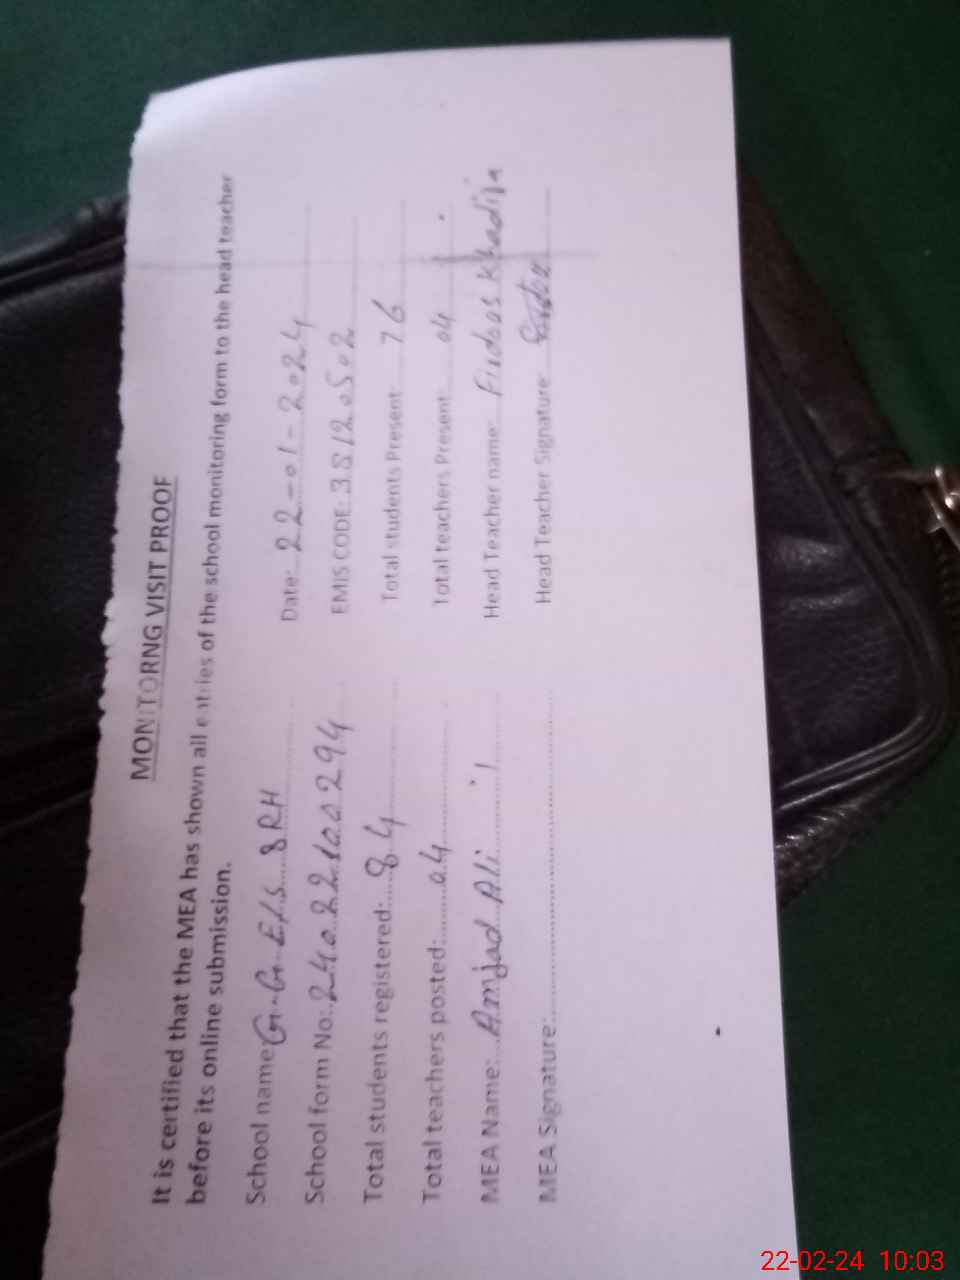 MONITORNG VISIT PROOF
It is certified that the MEA has shown all entries of the school monitoring form to the head teacher
before its online submission.
School name G.G.E/S 8RH Date: 22-01-2024
School form No: 24022100294 EMIS CODE: 38120502
Total students registered: 84 Total students Present: 76
Total teachers posted: 04 Total teachers Present: 04
MEA Name: Amjad Ali Head Teacher name: Firdoos Khadija
MEA Signature: Head Teacher Signature:
22-02-24 10:03